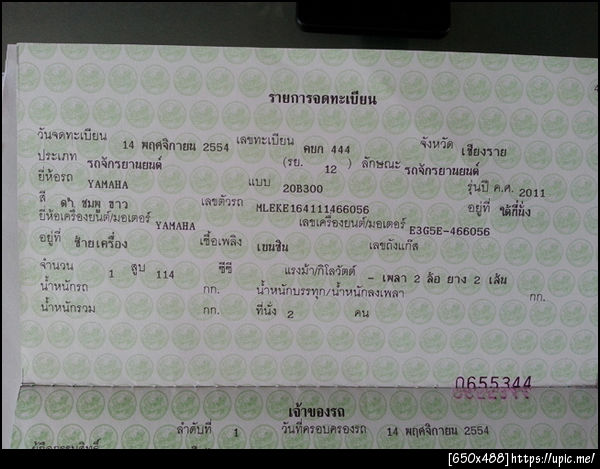 รายการจดทะเบียน
วันจดทะเบียน 14 พฤศจิกายน 2554 เลขทะเบียน คยก 444 จังหวัด เชียงราย
ประเภท รถจักรยานยนต์ (รย. 12 ) ลักษณะ รถจักรยานยนต์
ยี่ห้อรถ YAMAHA แบบ 20B300 รุ่นปี ค.ศ. 2011
สี ดำ ชมพู ขาว เลขตัวรถ MLEKE164111466056 อยู่ที่ ใต้ที่นั่ง
ยี่ห้อเครื่องยนต์/มอเตอร์ YAMAHA เลขเครื่องยนต์/มอเตอร์ E3G5E-466056
อยู่ที่ ซ้ายเครื่อง เชื้อเพลิง เบนซิน เลขถังแก๊ส
จำนวน 1 สูบ 114 ซีซี แรงม้า/กิโลวัตต์ - เพลา 2 ล้อ ยาง 2 เส้น
น้ำหนักรถ กก. น้ำหนักบรรทุก/น้ำหนักลงเพลา กก.
น้ำหนักรวม กก. ที่นั่ง 2 คน
0655344
เจ้าของรถ
ลำดับที่ 1 วันที่ครอบครองรถ 14 พฤศจิกายน 2554
ผู้ถือกรรมสิทธิ์
[650x488]https://upic.me/